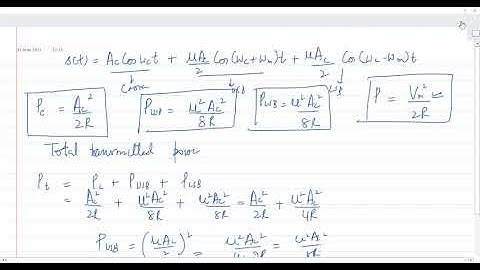 s(t) = Ac Cos ωct + μAc/2 Cos(ωc+ωm)t + μAc/2 Cos(ωc-ωm)t
USB LSB
Pc = Ac²/2R PUSB = μ²Ac²/8R PLSB = μ²Ac²/8R P = Vm²/2R
Total transmitted power
Pt = Pc + PUSB + PLSB
= Ac²/2R + μ²Ac²/8R + μ²Ac²/8R = Ac²/2R + μ²Ac²/4R
PUSB = (μAc/2)² = μ²Ac² = μ²Ac²